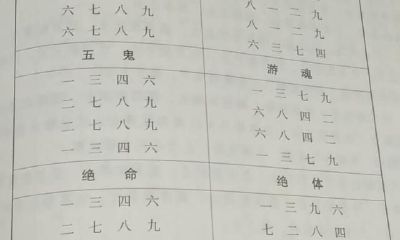 六 七 八 九
六 七 八 九
六 三 七 四
五 鬼
一 三 四 六
二 七 八 九
二 七 八 九
一 三 四 六
游 魂
一 三 七 九
六 八 四 二
六 八 四 二
一 三 七 九
绝 命
一 三 四 六
二 七 八 九
绝 体
一 三 九 六
七 二 八 四